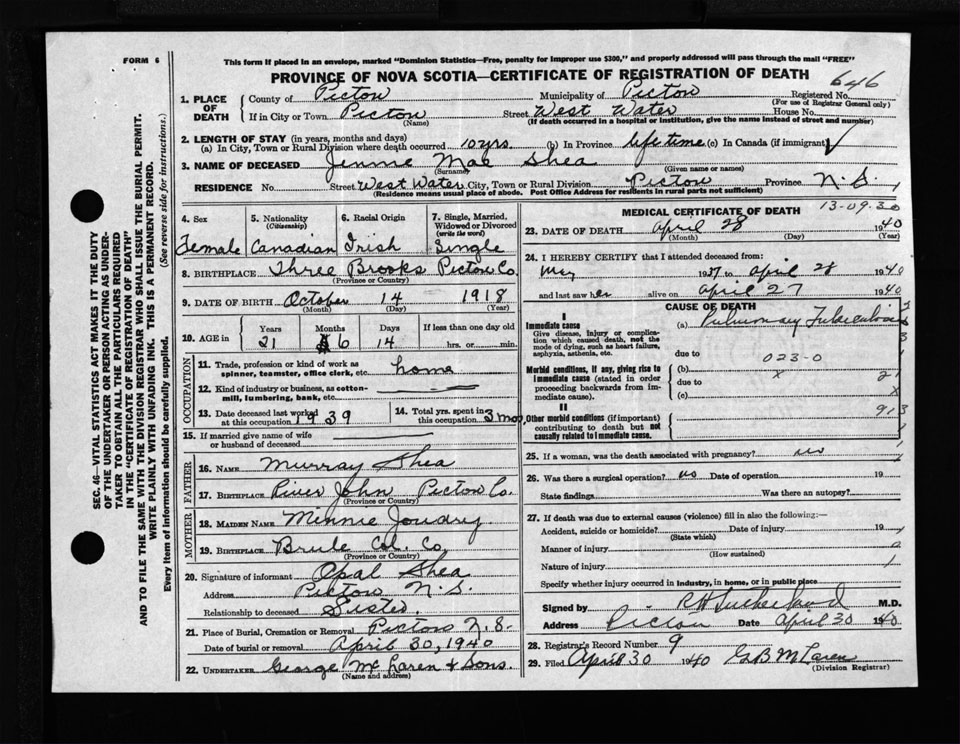 FORM 6
This form if placed in an envelope, marked "Dominion Statistics—Free, penalty for improper use $300," and properly addressed will pass through the mail "FREE"
PROVINCE OF NOVA SCOTIA—CERTIFICATE OF REGISTRATION OF DEATH
646
1. PLACE OF DEATH
County of Pictou Municipality of Pictou Registered No.
(For use of Registrar General only)
If in City or Town Pictou Street West Water House No.
(Name) (If death occurred in a hospital or institution, give the name instead of street and number)
2. LENGTH OF STAY (in years, months and days)
(a) In City, Town or Rural Division where death occurred 10 yrs. (b) In Province life time (c) In Canada (if immigrant)
3. NAME OF DECEASED Jennie Mae Shea
(Surname) (Given name or names)
RESIDENCE No. Street West Water City, Town or Rural Division Pictou Province N.S.
(Residence means usual place of abode. Post Office Address for residents in rural parts not sufficient)
4. Sex 5. Nationality 6. Racial Origin 7. Single, Married, Widowed or Divorced
(Citizenship) (write the word)
Female Canadian Irish Single
8. BIRTHPLACE Three Brooks Pictou Co.
(Province or Country)
9. DATE OF BIRTH October 14 1918
(Month) (Day) (Year)
10. AGE in Years Months Days If less than one day old
21 6 14 hrs. or min.
OCCUPATION
11. Trade, profession or kind of work as spinner, teamster, office clerk, etc. home
12. Kind of industry or business, as cotton-mill, lumbering, bank, etc.
13. Date deceased last worked at this occupation 1939
14. Total yrs. spent in this occupation 3 mos
15. If married give name of wife or husband of deceased
FATHER
16. NAME Murray Shea
17. BIRTHPLACE River John Pictou Co.
(Province or Country)
MOTHER
18. MAIDEN NAME Minnie Joudrey
19. BIRTHPLACE Brule Col. Co.
(Province or Country)
20. Signature of informant Opal Shea
Address Pictou N.S.
Relationship to deceased Sister
21. Place of Burial, Cremation or Removal Pictou N.S.
Date of burial or removal April 30, 1940
22. UNDERTAKER George McLaren & Sons.
(Name and address)
MEDICAL CERTIFICATE OF DEATH 13-09-30
23. DATE OF DEATH April 28 1940
(Month) (Day) (Year)
24. I HEREBY CERTIFY that I attended deceased from:
May 1937 to April 28 1940
and last saw her alive on April 27 1940
CAUSE OF DEATH
I
Immediate cause (a) Pulmonary Tuberculosis
Give disease, injury or complication which caused death, not the mode of dying, such as heart failure, asphyxia, asthenia, etc.
due to 023-0
Morbid conditions, if any, giving rise to immediate cause (stated in order proceeding backwards from immediate cause). (b) x
due to 21
(c) x
II
Other morbid conditions (if important) contributing to death but not causally related to immediate cause.
913
25. If a woman, was the death associated with pregnancy? no
26. Was there a surgical operation? no Date of operation 19
State findings Was there an autopsy?
27. If death was due to external causes (violence) fill in also the following:—
Accident, suicide or homicide? Date of injury 19
(State which)
Manner of injury
(How sustained)
Nature of injury
Specify whether injury occurred in industry, in home, or in public place
Signed by R H Sutherland M.D.
Address Pictou Date April 30 1940
28. Registrar's Record Number 9
29. Filed April 30 1940 G.B. McLaren
(Division Registrar)
SEC. 46—VITAL STATISTICS ACT MAKES IT THE DUTY
OF THE UNDERTAKER OR PERSON ACTING AS UNDER-
TAKER TO OBTAIN ALL THE PARTICULARS REQUIRED
IN THE "CERTIFICATE OF REGISTRATION OF DEATH"
AND TO FILE THE SAME WITH THE DIVISION REGISTRAR WHO SHALL ISSUE THE BURIAL PERMIT.
WRITE PLAINLY WITH UNFADING INK. THIS IS A PERMANENT RECORD.
Every item of information should be carefully supplied. (See reverse side for instructions.)